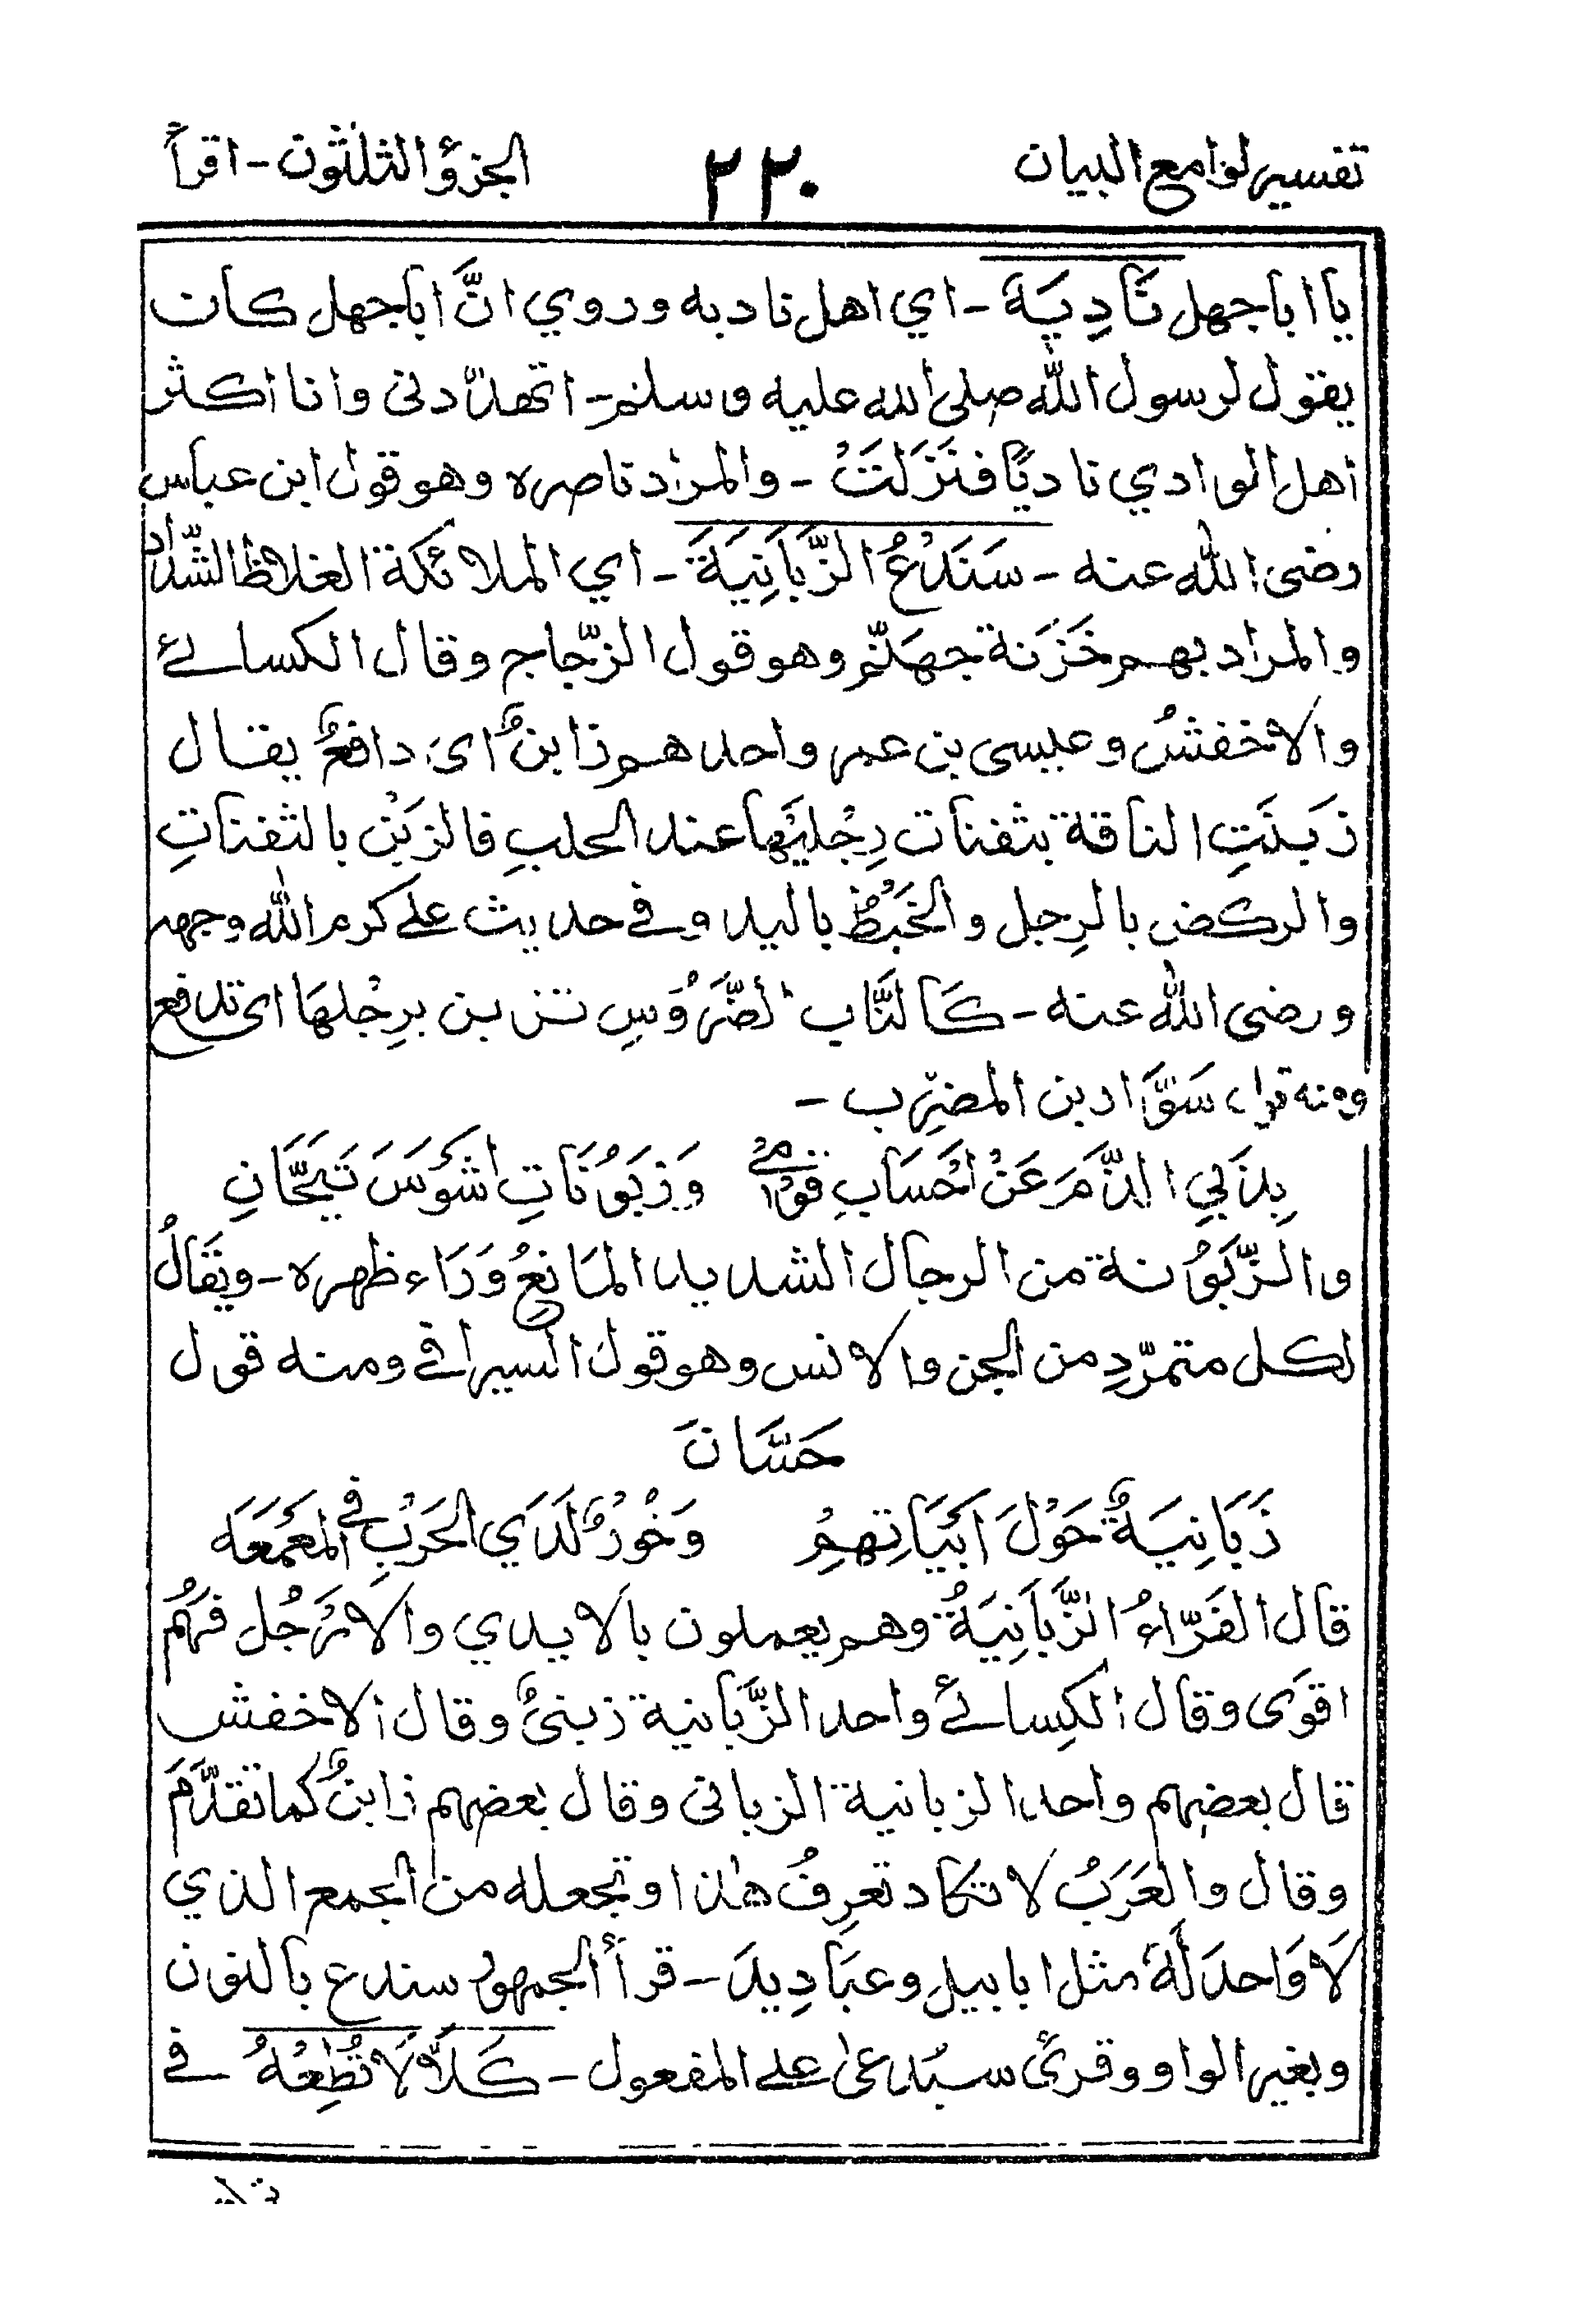 تفسير لوامع البيان ٢٢٠ الجزؤ الثلثون - اقرأ
يا ابا جهل نَادِيَهَ - اي اهل ناديه وروي انَّ ابا جهل كان
يقول لرسول الله صلى الله عليه وسلم - اتهدّدني وانا اكثر
اهل الوادي ناديًا فنَزَلَتْ - والمراد ناصره وهو قول ابن عباس
رضى الله عنه - سَنَدْعُ الزَّبَانِيَةَ - اي الملائكة الغلاظ الشّداد
والمراد بهم خَزَنة جهنّم وهو قول الزّجاج وقال الكسائے
والاخفشُ وعيسى بن عمر واحدهم زابنٌ اىَ دافعٌ يقال
زَبَنَتِ الناقة بثفنات رِجْليْها عند الحلبِ فالزبْن بالثفناتِ
والركض بالرِجل والخَبْطُ باليد وفے حديث علے كرم الله وجهه
ورضى الله عنه - كَالنَّاب الضَّرُوْسِ تزبن برِجْلهَا اى تدافع
ومنه قول سَوَّاد بن المضرِب -
بِذَبِي الذَّمَ عَنْ احْسَابِ قوْمِيْ وَزَبَوُنَاتِ اشْوَسَ تَيَّحَانِ
والزَّبَوُنة من الرجال الشديد المَانِعُ وَرَاء ظهره - ويقَالُ
لكل متمرّدٍ من الجن والانس وهو قول السيرافے ومنه قول
حَسَّانَ
زَبَانِيَةٌ حَوْلَ اَبْيَاتِهِمْ وَخُوْرٌ لَدَي الحَرْبِ فے المَعْمَعَه
قال الفَرّاءُ الزَّبَانِيَةُ وهم يعملون بالايدي والارْجُل فهُمْ
اقوَى وقال الكِسائے واحد الزَّبَانية زبنىٌّ وقال الاخفش
قال بعضهم واحد الزبانية الزبانى وقال بعضهم زابنٌ كما تقدَّمَ
وقال والعَرَبُ لا تكاد تعرِفُ هٰذا وتجعله من الجمع الذي
لَا وَاحدَ لَهُ مثل ابابيل وعبَادِيدَ - قرأ الجمهور سندع بالنون
وبغير الواو وقرئ سيُدعىٰ علے المفعول - كَلاَّ لَا تُطِعْهُ فے